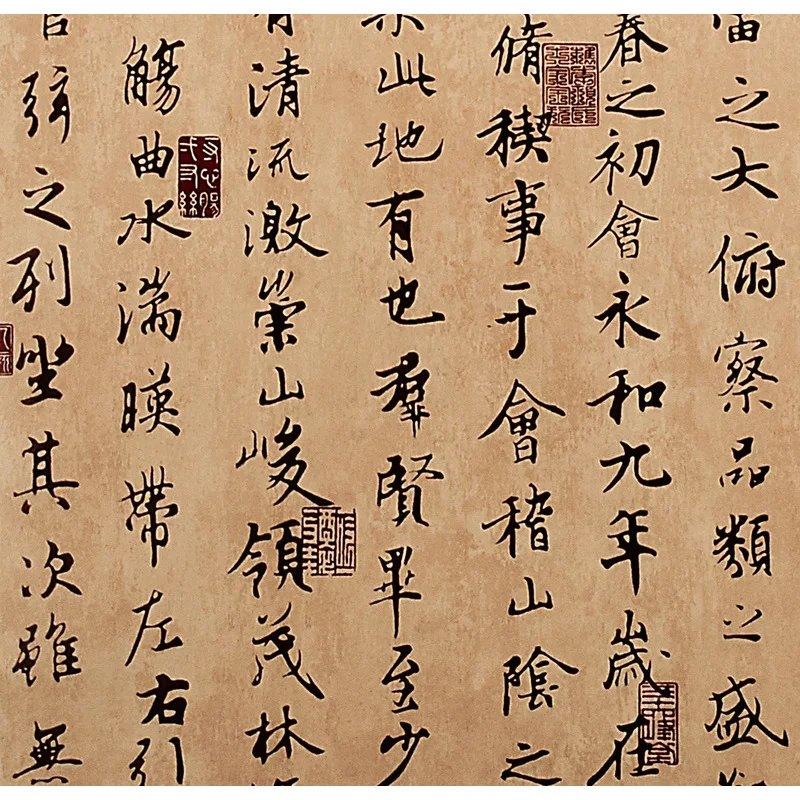 宙之大俯察品類之盛
春之初會永和九年歲在
脩稧事于會稽山陰之
此地有也羣賢畢至少
有清流激崇山峻領茂林
觴曲水湍暎帶左右引
弦之列坐其次雖無